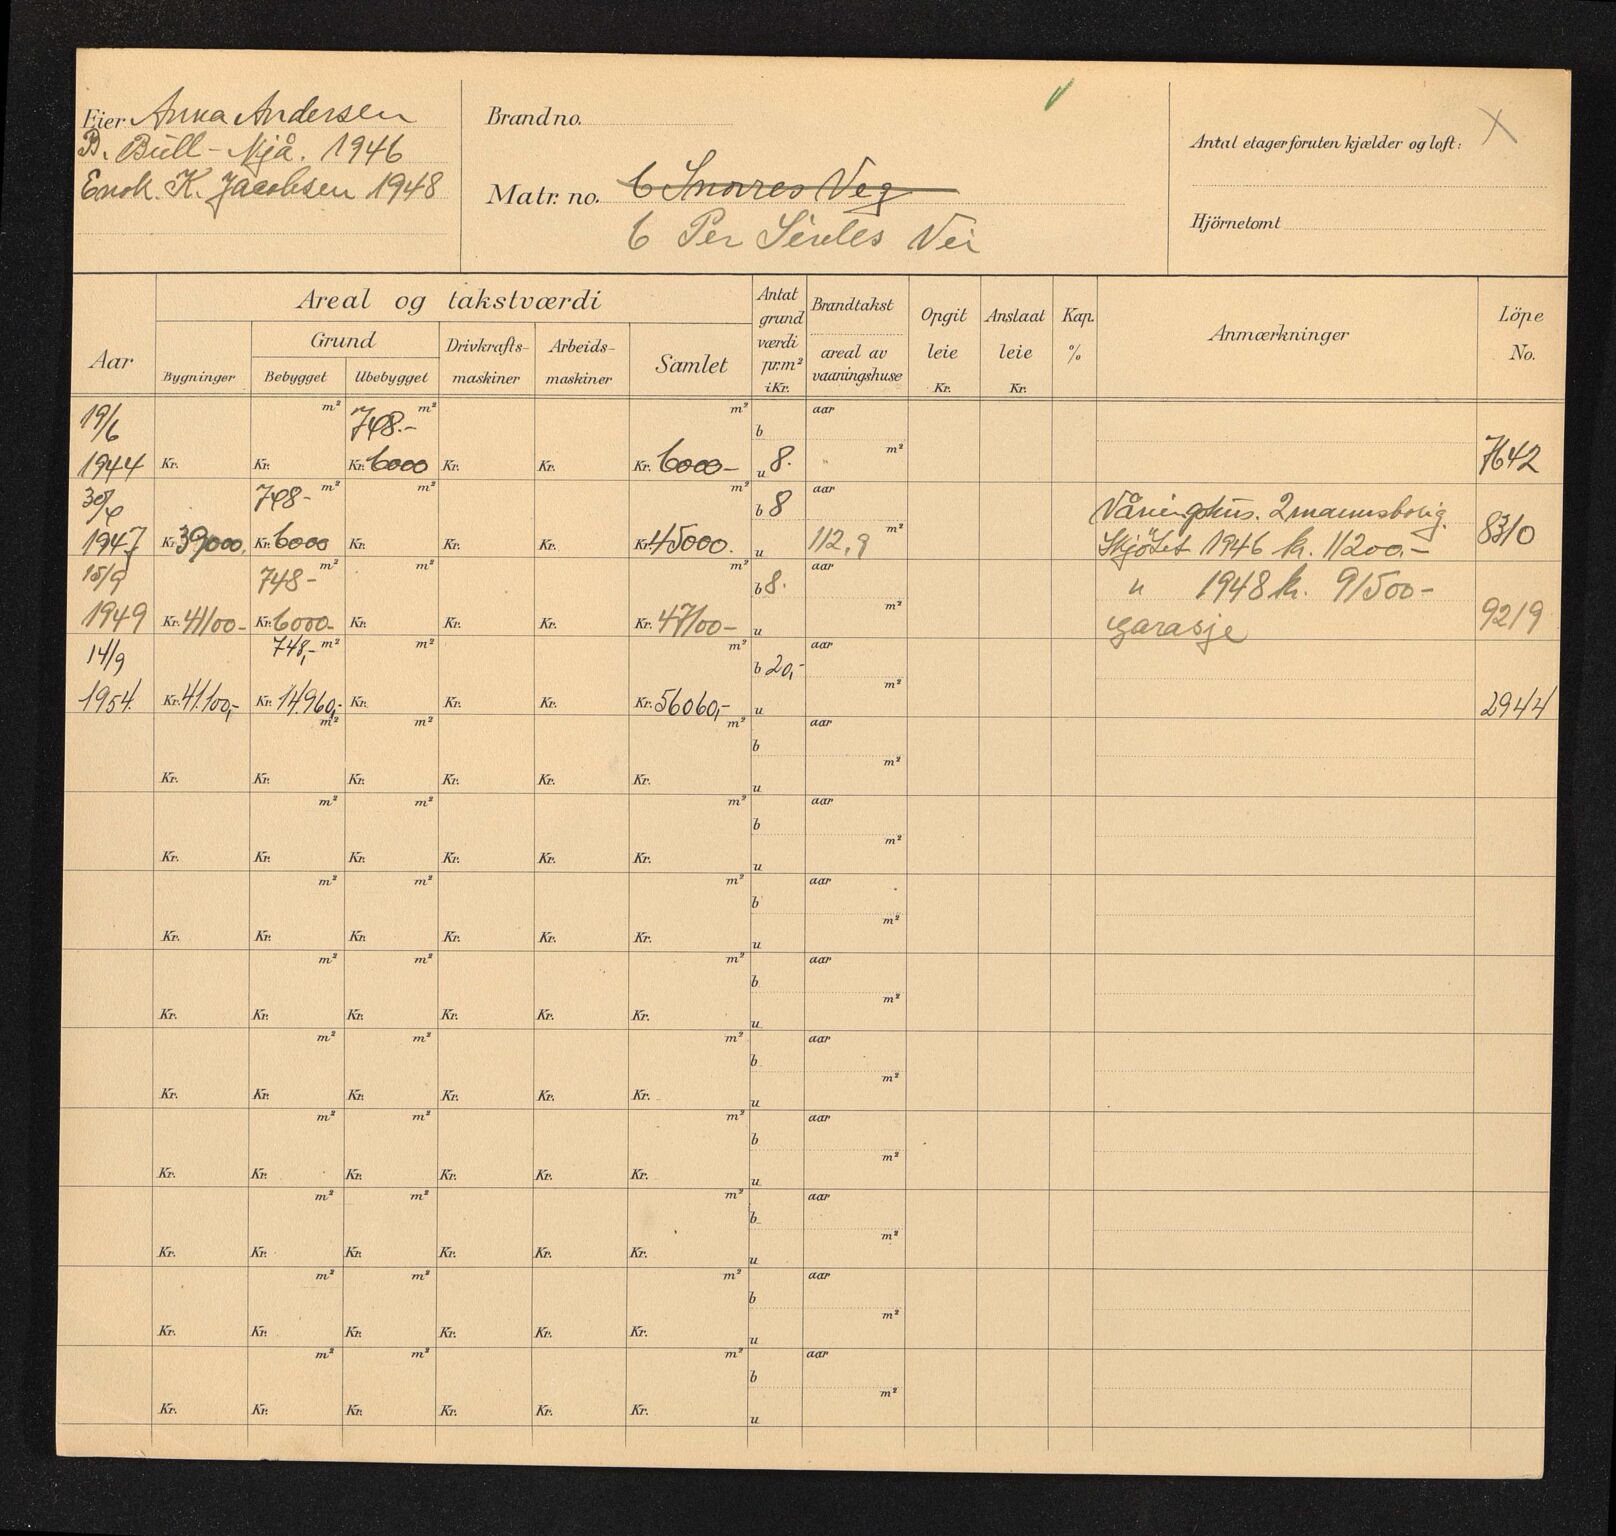 Eier Anna Andersen
B. Bull - Njå. 1946
Enok. K. Jacobsen 1948
Brand no.
Matr. no. 6 Snorres Veg
6 Per Sivles Vei
Antal etager foruten kjælder og loft:
Hjörnetomt
Aar
Areal og takstværdi
Bygninger
Grund
Bebygget
Ubebygget
Drivkrafts-maskiner
Arbeids-maskiner
Samlet
Antat grund værdi pr. m² i Kr.
Brandtakst
areal av vaaningshuse
Opgit leie Kr.
Anslaat leie Kr.
Kap. %
Anmærkninger
Löpe No.
19/6 m² 748.- m² m² b aar
1944 Kr. Kr. Kr. 6000 Kr. Kr. Kr. 6000- u 8. m² 7642
748- m² m² m² b 8 aar Våningshus. 2mannsbolig.
1947 Kr. 39000, Kr. 6000 Kr. Kr. Kr. Kr. 45000. u 112,9 m² Skjötet 1946 kr. 11200,- 8310
15/9 748- m² m² m² b 8. aar " 1948 kr. 91500-
1949 Kr. 41100- Kr. 6000- Kr. Kr. Kr. Kr. 47100- u m² garasje 9219
14/9 748,- m² m² m² b 20,- aar
1954. Kr. 41.100,- Kr. 14.960,- Kr. Kr. Kr. Kr. 56060,- u m² 2944
m² m² m² b aar
Kr. Kr. Kr. Kr. Kr. Kr. u m²
m² m² m² b aar
Kr. Kr. Kr. Kr. Kr. Kr. u m²
m² m² m² b aar
Kr. Kr. Kr. Kr. Kr. Kr. u m²
m² m² m² b aar
Kr. Kr. Kr. Kr. Kr. Kr. u m²
m² m² m² b aar
Kr. Kr. Kr. Kr. Kr. Kr. u m²
m² m² m² b aar
Kr. Kr. Kr. Kr. Kr. Kr. u m²
m² m² m² b aar
Kr. Kr. Kr. Kr. Kr. Kr. u m²
m² m² m² b aar
Kr. Kr. Kr. Kr. Kr. Kr. u m²
m² m² m² b aar
Kr. Kr. Kr. Kr. Kr. Kr. u m²